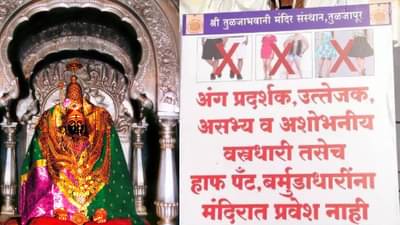 श्री तुळजाभवानी मंदिर संस्थान,तुळजापूर
अंग प्रदर्शक,उत्तेजक,
असभ्य व अशोभनीय
वस्त्रधारी तसेच
हाफ पँट,बर्मुडाधारींना
मंदिरात प्रवेश नाही